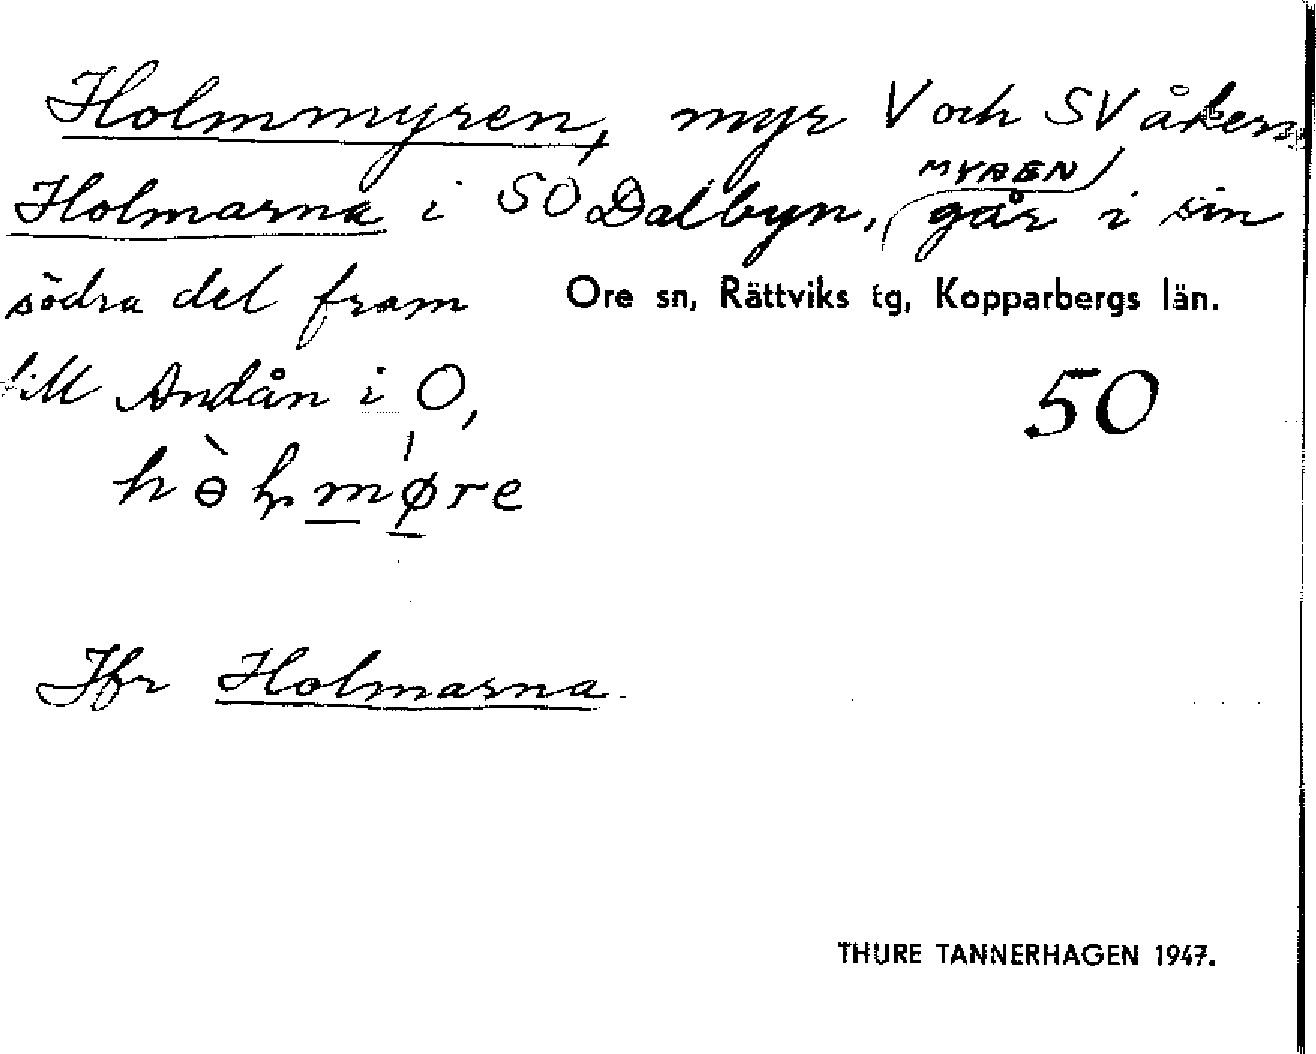 Holmmyren, myr V och SV åkern
Holmarna i SO Dalbyn, MYREN går i sin
södra del fram
Ore sn, Rättviks tg, Kopparbergs län.
till Andån i O,
50
Jfr Holmarna.
THURE TANNERHAGEN 1947.